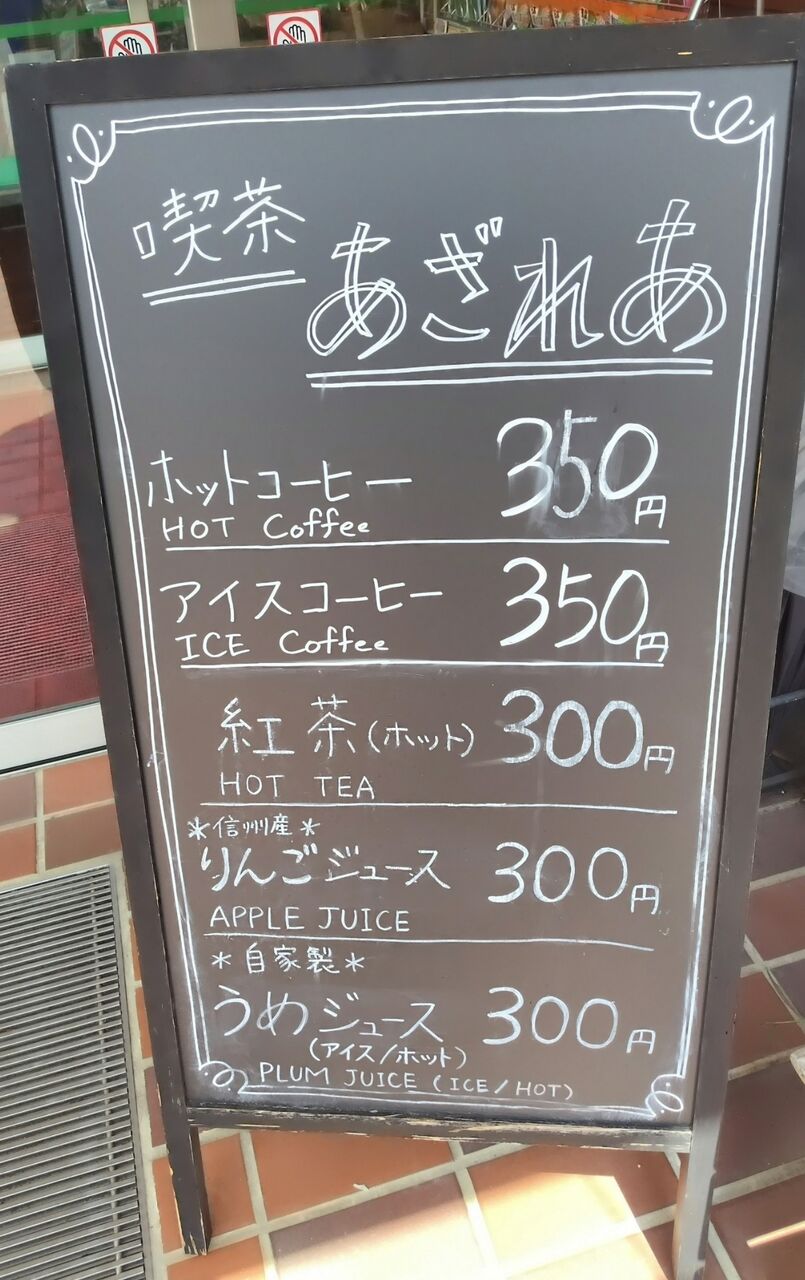 喫茶
あざれあ
ホットコーヒー 350円
HOT Coffee
アイスコーヒー 350円
ICE Coffee
紅茶(ホット) 300円
HOT TEA
*信州産*
りんごジュース 300円
APPLE JUICE
*自家製*
うめジュース 300円
(アイス/ホット)
PLUM JUICE (ICE/HOT)